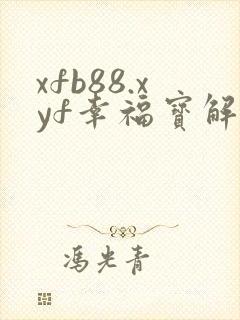 xfb88.x
yf幸福寳解
馮光青